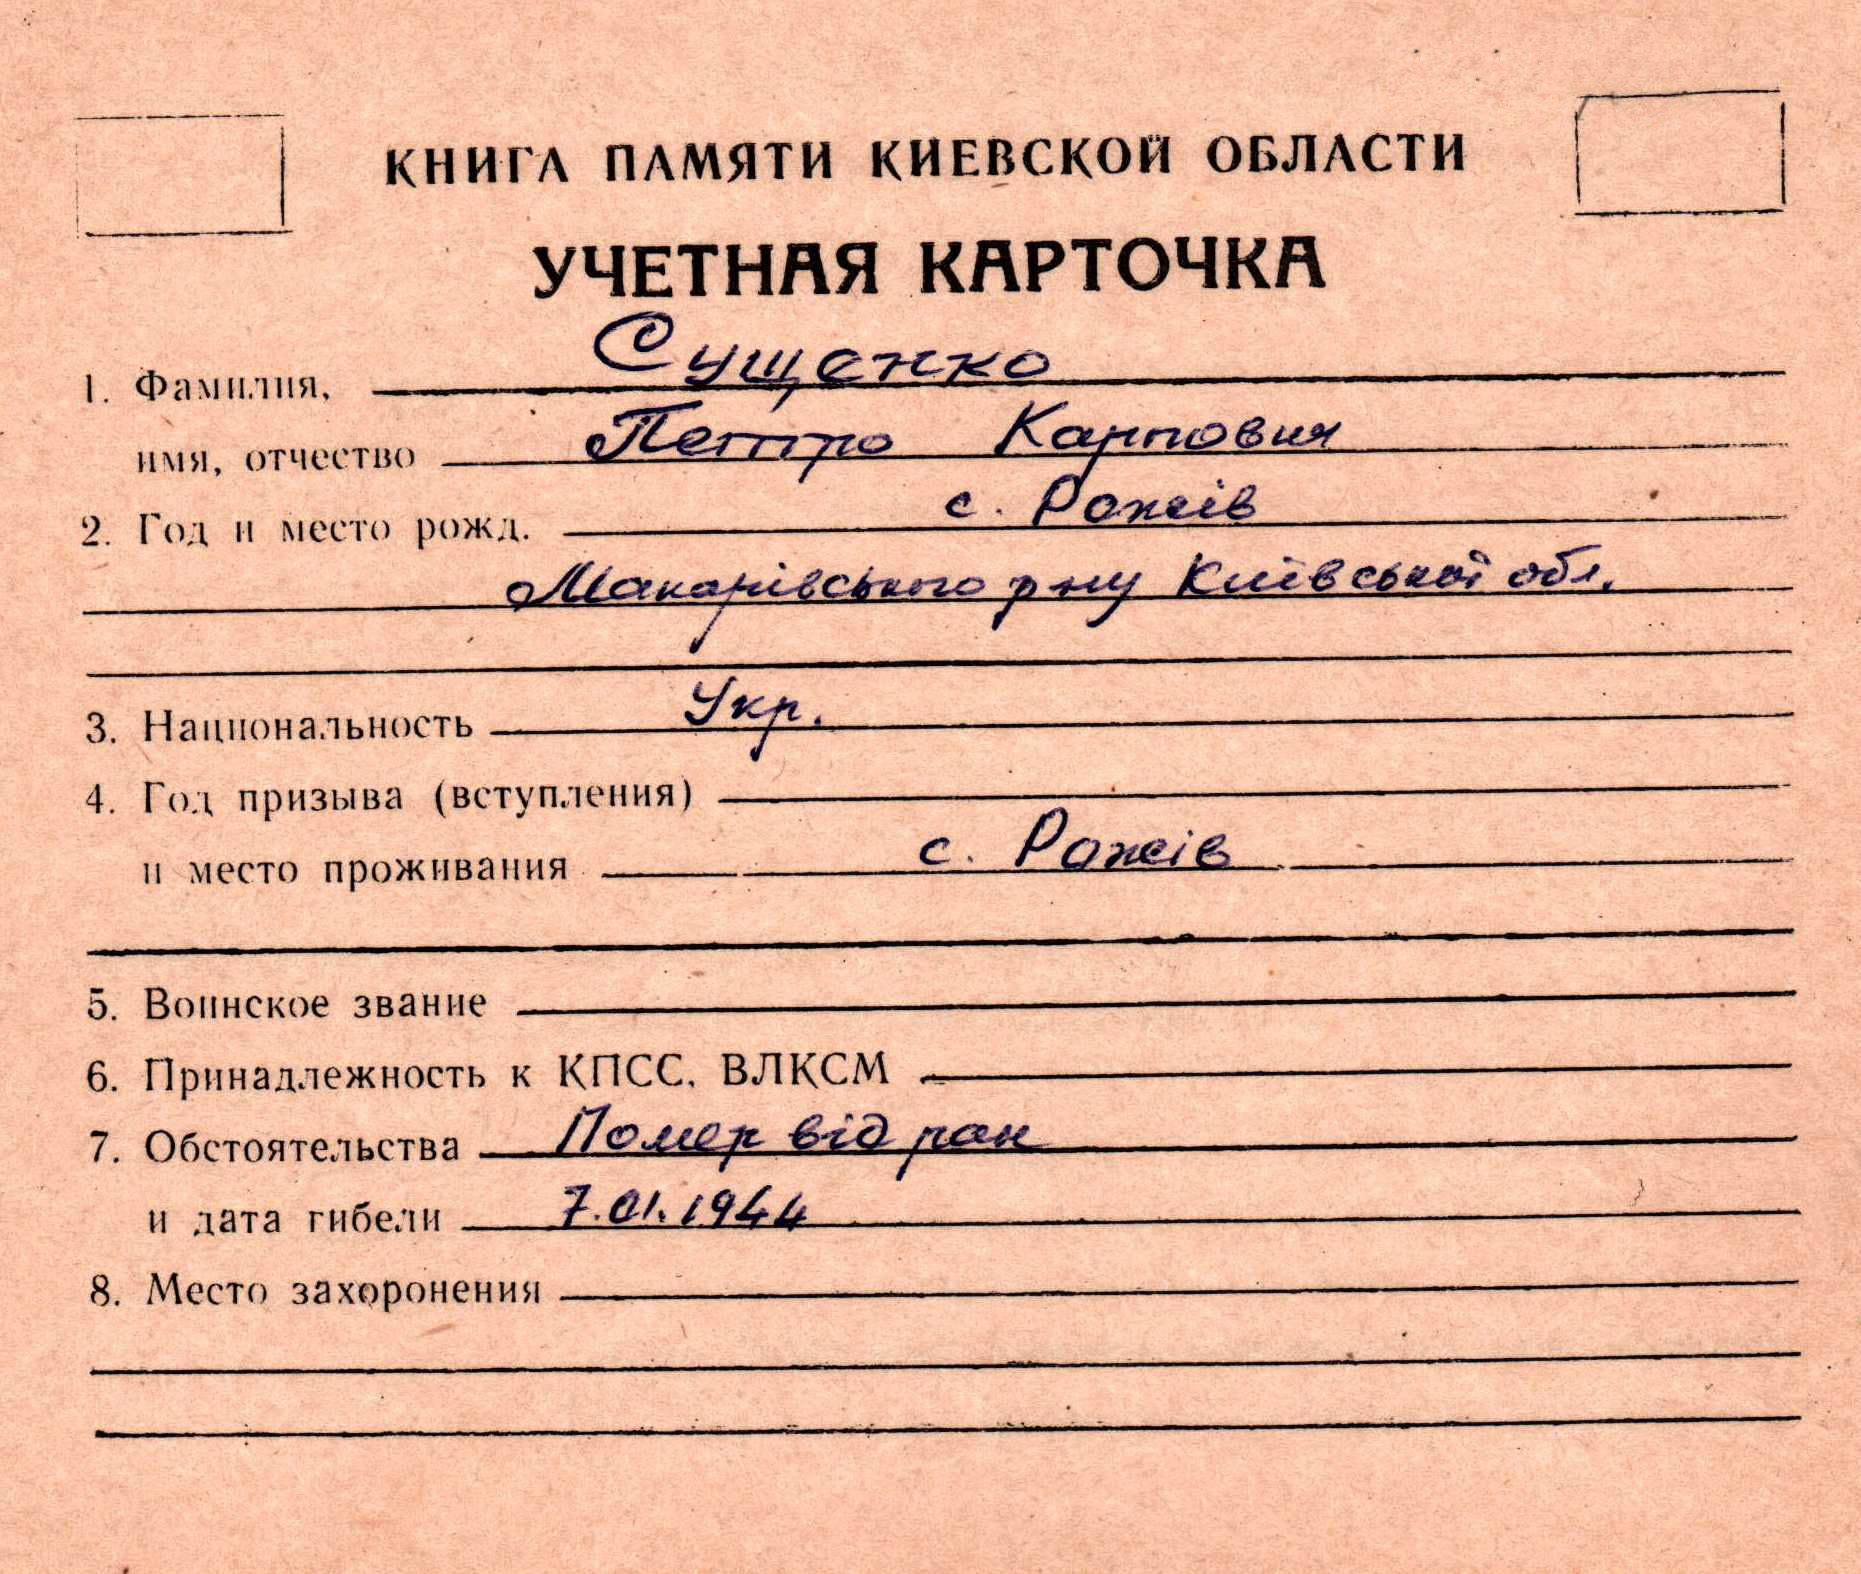 КНИГА ПАМЯТИ КИЕВСКОЙ ОБЛАСТИ
УЧЕТНАЯ КАРТОЧКА
1. Фамилия, Сущенко
имя, отчество Петро Карпович
2. Год и место рожд. с. Рожів
Макарівського р ну Київської обл.
3. Национальность Укр.
4. Год призыва (вступления)
и место проживания с. Рожів
5. Воинское звание
6. Принадлежность к КПСС, ВЛКСМ
7. Обстоятельства Помер від ран
и дата гибели 7.01.1944
8. Место захоронения